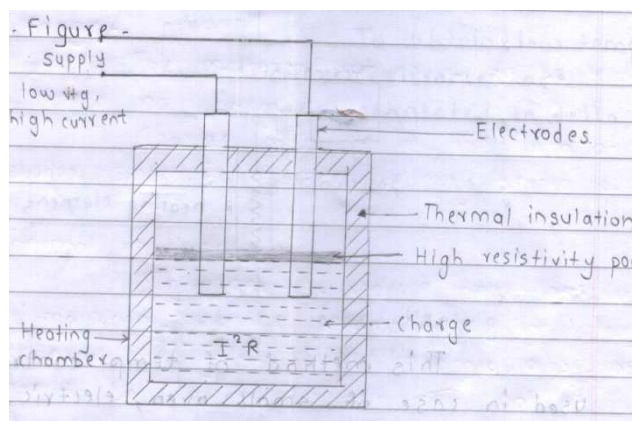 - Figure -
supply
low vtg,
high current
Electrodes
Thermal insulation
High resistivity po
charge
Heating
chamber
I²R